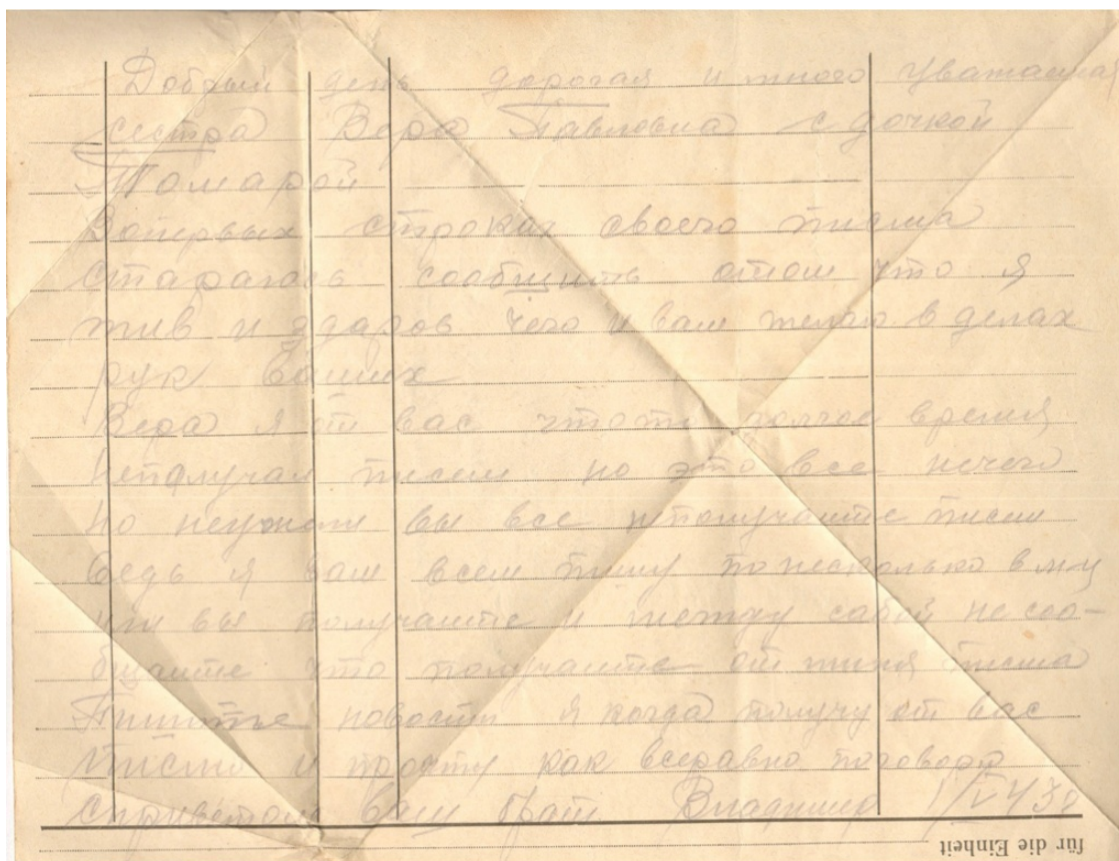 Добрый день дорогая и много уважаемая
сестра Вера Павловна с дочкой
Томарой
Вопервых строках своего писма
стараюсь сообщить отом что я
жив и здаров чего и вам желаю в делах
рук ваших
Вера я от вас чтото долгое время
Неполучал писем но это все нечего
но неужели вы все неполучаите писем
ведь я вам всем пишу по несколько
или вы получаите и между сабой не соо-
бщаите что получаите от миня писма
Пишите новости я когда получу от вас
писмо и прочту как всеравно поговорю
Сприветом ваш брат Владимир
für die Einheit